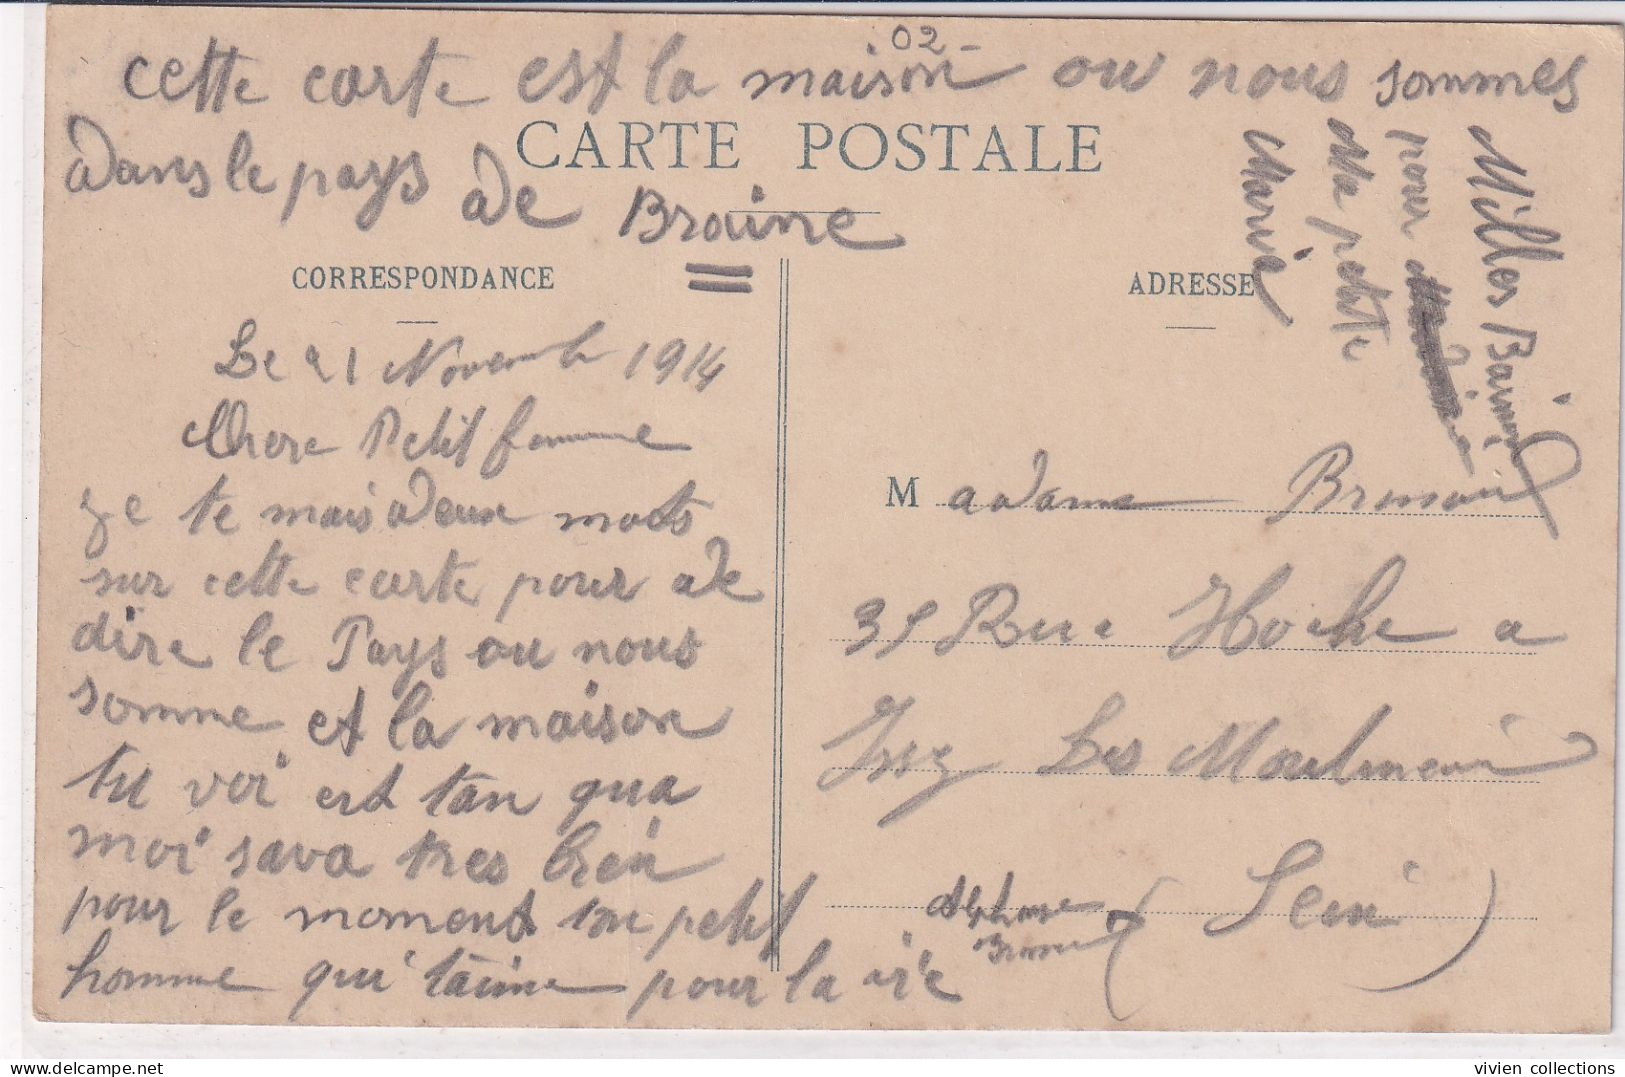 02 -
cette carte est la maison ou nous sommes
dans le pays de Braine
CARTE POSTALE
Milles Baiser
pour
Ma petite
Marie
CORRESPONDANCE
ADRESSE
Le 21 Novembre 1914
Chere Petit femme
Je te mais deux mots
sur cette carte pour de
dire le Pays ou nous
somme et la maison
tu voi est tan qua
moi sava tres bien
pour le moment ton petit
homme qui t'aime pour la vie
Madame
35 Rue Hoche a
Issy Les Moulineau
(Seine)
Alphonse
vivien collections